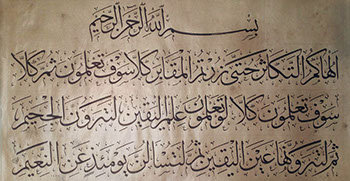 بسم الله الرحمن الرحيم
الهاكم التكاثر حتى زرتم المقابر كلا سوف تعلمون ثم كلا
سوف تعلمون كلا لو تعلمون علم اليقين لترون الجحيم
ثم لترونها عين اليقين ثم لتسالن يومئذ عن النعيم